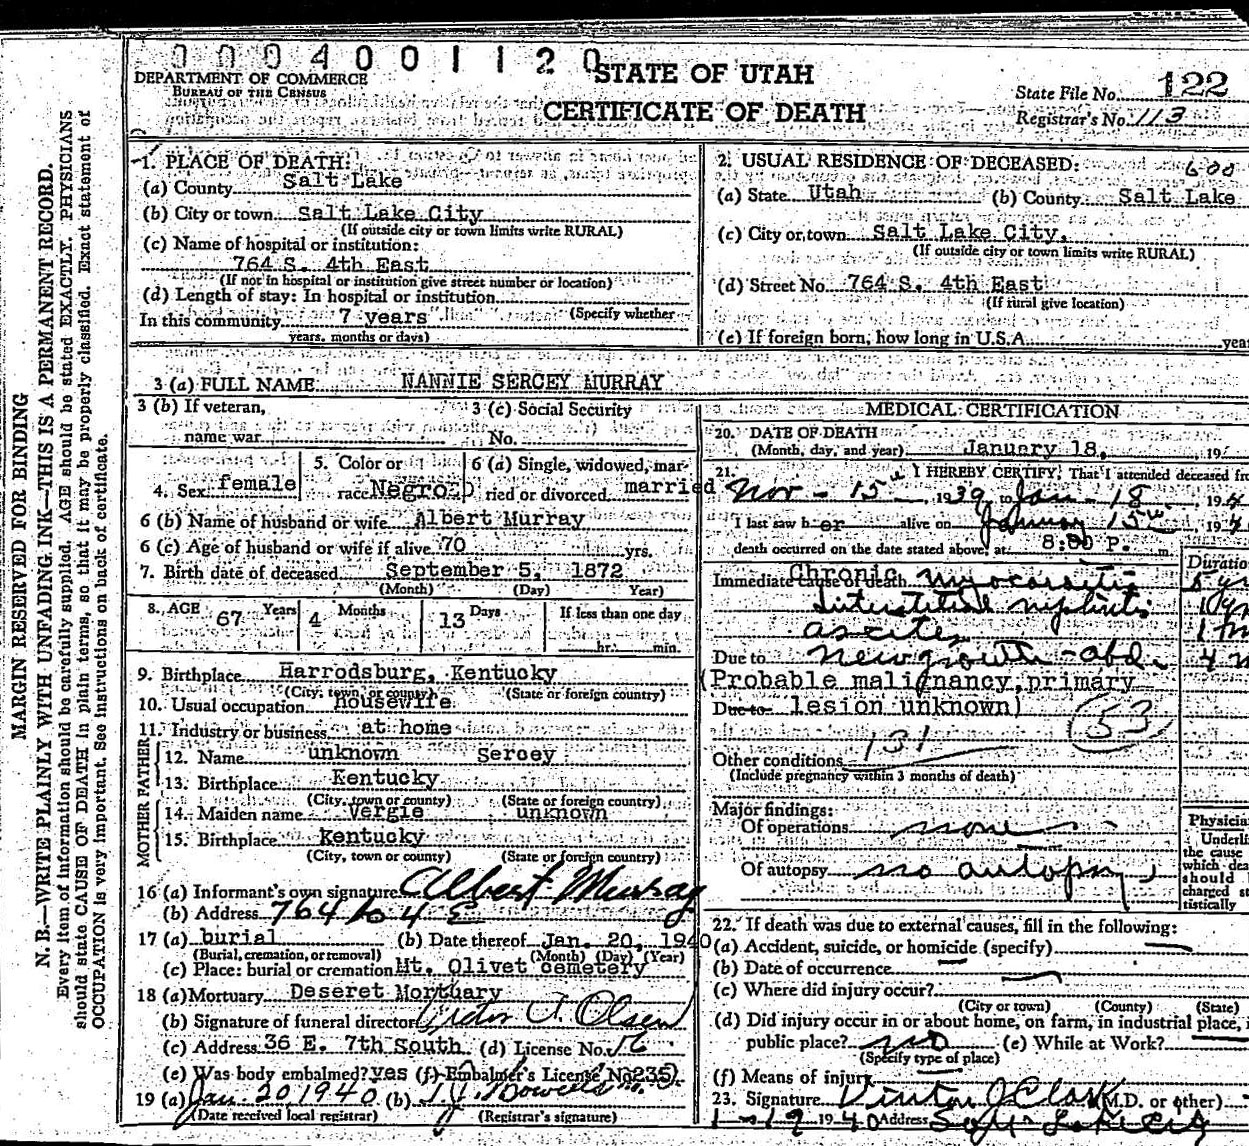 0004001120
DEPARTMENT OF COMMERCE
BUREAU OF THE CENSUS
STATE OF UTAH
CERTIFICATE OF DEATH
State File No. 122
Registrar's No. 113
MARGIN RESERVED FOR BINDING
N. B.—WRITE PLAINLY WITH UNFADING INK—THIS IS A PERMANENT RECORD.
Every item of information should be carefully supplied. AGE should be stated EXACTLY. PHYSICIANS
should state CAUSE OF DEATH in plain terms, so that it may be properly classified. Exact statement of
OCCUPATION is very important. See instructions on back of certificate.
1. PLACE OF DEATH:
(a) County Salt Lake
(b) City or town Salt Lake City
(If outside city or town limits write RURAL)
(c) Name of hospital or institution:
764 S. 4th East
(If not in hospital or institution give street number or location)
(d) Length of stay: In hospital or institution
(Specify whether
In this community 7 years
years, months or days)
2. USUAL RESIDENCE OF DECEASED: 600
(a) State Utah (b) County Salt Lake
(c) City or town Salt Lake City.
(If outside city or town limits write RURAL)
(d) Street No. 764 S. 4th East
(If rural give location)
(e) If foreign born, how long in U.S.A. year
3 (a) FULL NAME NANNIE SERCEY MURRAY
3 (b) If veteran,
name war
3 (c) Social Security
No.
4. Sex female
5. Color or
race Negro
6 (a) Single, widowed, mar-
ried or divorced married
6 (b) Name of husband or wife Albert Murray
6 (c) Age of husband or wife if alive 70 yrs.
7. Birth date of deceased September 5, 1872
(Month) (Day) Year)
8. AGE 67 Years 4 Months 13 Days If less than one day
hr. min.
9. Birthplace Harrodsburg, Kentucky
(City, town or county) (State or foreign country)
10. Usual occupation housewife
11. Industry or business at home
FATHER
12. Name unknown Sercey
13. Birthplace Kentucky
(City, town or county) (State or foreign country)
MOTHER
14. Maiden name Vergie unknown
15. Birthplace Kentucky
(City, town or county) (State or foreign country)
16 (a) Informant's own signature Albert Murray
(b) Address 764 So 4 E
17 (a) burial (b) Date thereof Jan. 20, 1940
(Burial, cremation, or removal) (Month) (Day) (Year)
(c) Place: burial or cremation Mt. Olivet cemetery
18 (a) Mortuary Deseret Mortuary
(b) Signature of funeral director Victor Olsen
(c) Address 36 E. 7th South (d) License No. 16
(e) Was body embalmed? yes (f) Embalmer's License No. 235
19 (a) Jan 20 1940 (b)
(Date received local registrar) (Registrar's signature)
MEDICAL CERTIFICATION
20. DATE OF DEATH
(Month, day, and year) January 18, 19
21. I HEREBY CERTIFY, That I attended deceased fro
Nov - 15th, 1939 to Jan - 18, 194
I last saw her alive on January 15th, 19
death occurred on the date stated above, at 8:00 P. m.
Duratio
Immediate cause of death Chronic myocarditis 5 yr
Interstitial nephritis
ascites 1 m
Due to new growth - abd. 4 m
(Probable malignancy, primary
Due to lesion unknown)
53
Other conditions 131
(Include pregnancy within 3 months of death)
Major findings:
Of operations none
Of autopsy no autopsy
Physicia
Underli
the cause
which dea
should
charged st
tistically
22. If death was due to external causes, fill in the following:
(a) Accident, suicide, or homicide (specify)
(b) Date of occurrence
(c) Where did injury occur?
(City or town) (County) (State)
(d) Did injury occur in or about home, on farm, in industrial place, i
public place? no (e) While at Work?
(Specify type of place)
(f) Means of injury
23. Signature Vinton J Clark (M.D. or other)
1-19 1940 Address Salt Lake City